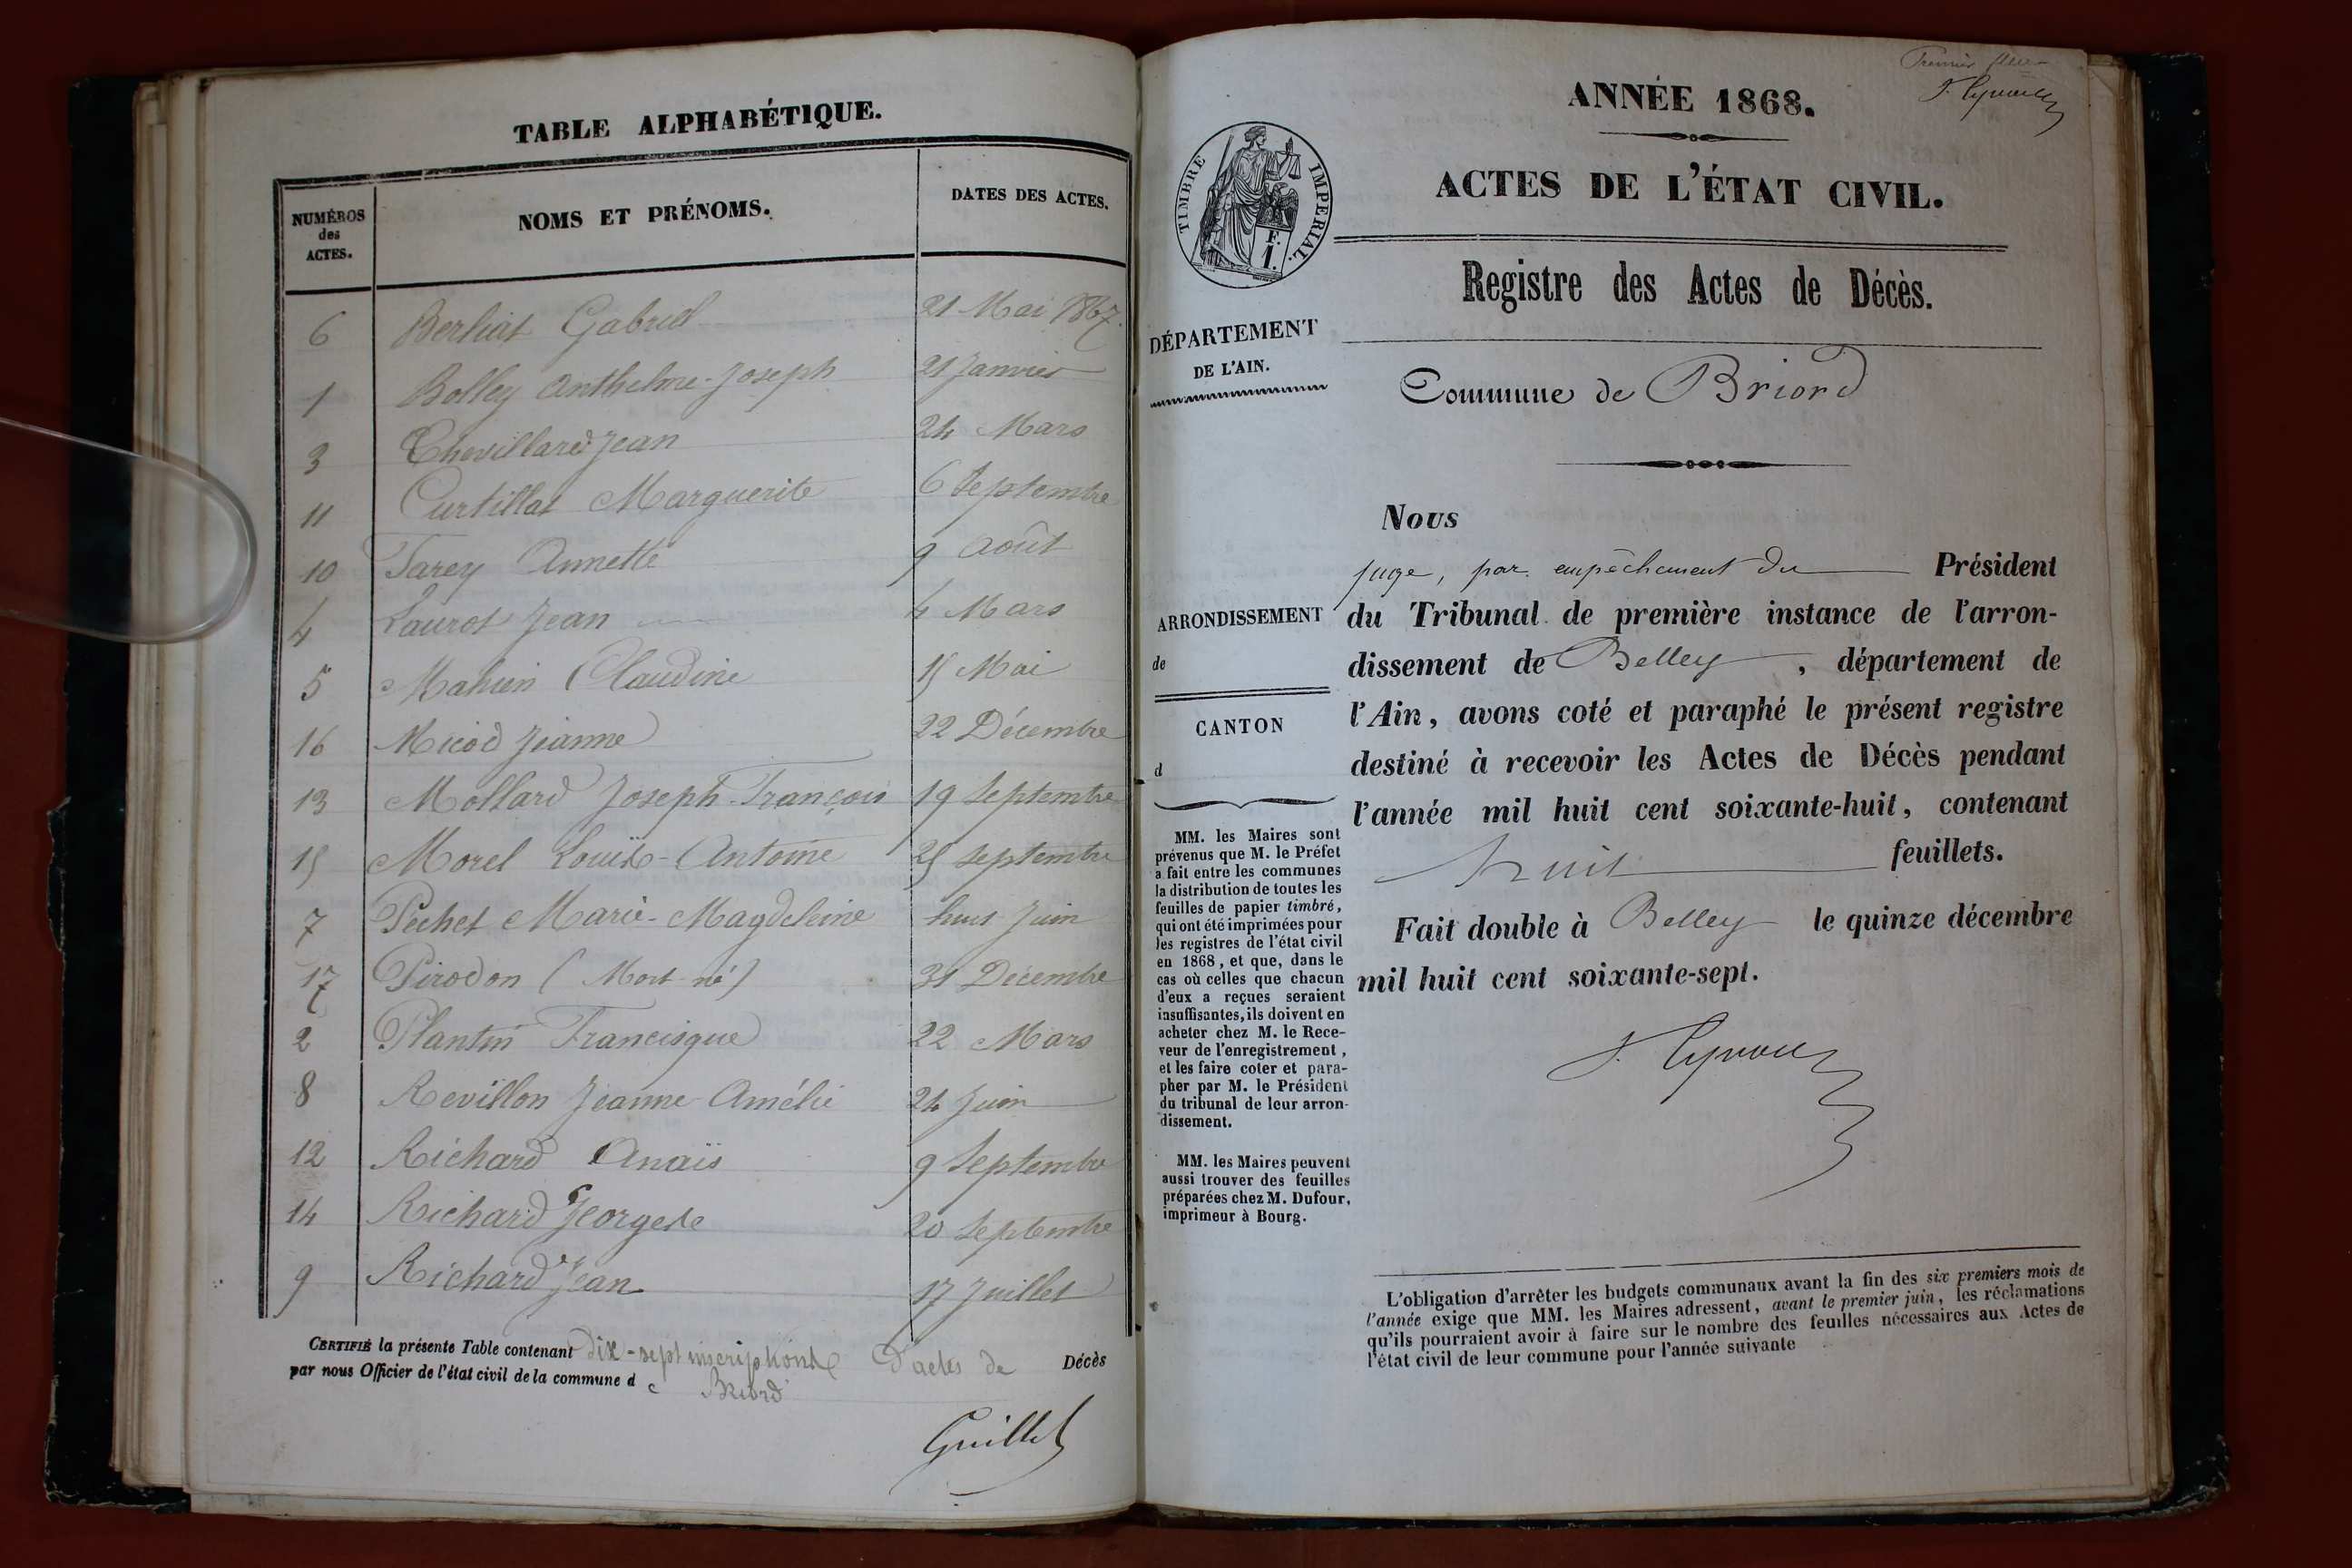 TABLE ALPHABÉTIQUE.
NUMÉROS des ACTES.
NOMS ET PRÉNOMS.
DATES DES ACTES.
6 Berliat Gabriel 21 Mai 1867.
1 Bolley Anthelme-Joseph 21 Janvier
3 Chevillard Jean 24 Mars
11 Curtillat Marguerite 6 Septembre
10 Farey Annette 9 Août
4 Laurot Jean 4 Mars
5 Claudine 15 Mai
16 Micod Jeanne 22 Décembre
13 Mollard Joseph-François 19 Septembre
15 Morel Louis-Antoine 25 Septembre
7 Péchet Marie-Magdeleine huit Juin
17 Pirodon (Mort-né) 31 Décembre
2 Plantin Francisque 22 Mars
8 Revillon Jeanne-Amélie 24 Juin
12 Richard Anaïs 9 Septembre
14 Richard 20 Septembre
9 Richard Jean 17 Juillet
CERTIFIÉ la présente Table contenant dix-sept inscriptions d'actes de Décès
par nous Officier de l'état civil de la commune de Briord
Guillet
Premier
ANNÉE 1868.
ACTES DE L'ÉTAT CIVIL.
TIMBRE IMPERIAL.
F. 1.
Registre des Actes de Décès.
DÉPARTEMENT
DE L'AIN.
Commune de Briord
Nous
juge, par empêchement du Président
du Tribunal de première instance de l'arron-
dissement de Belley, département de
l'Ain, avons coté et paraphé le présent registre
destiné à recevoir les Actes de Décès pendant
l'année mil huit cent soixante-huit, contenant
huit feuillets.
Fait double à Belley le quinze décembre
mil huit cent soixante-sept.
ARRONDISSEMENT
de
CANTON
d
MM. les Maires sont
prévenus que M. le Préfet
a fait entre les communes
la distribution de toutes les
feuilles de papier timbré,
qui ont été imprimées pour
les registres de l'état civil
en 1868, et que, dans le
cas où celles que chacun
d'eux a reçues seraient
insuffisantes, ils doivent en
acheter chez M. le Rece-
veur de l'enregistrement,
et les faire coter et para-
pher par M. le Président
du tribunal de leur arron-
dissement.
MM. les Maires peuvent
aussi trouver des feuilles
préparées chez M. Dufour,
imprimeur à Bourg.
L'obligation d'arrêter les budgets communaux avant la fin des six premiers mois de
l'année exige que MM. les Maires adressent, avant le premier juin, les réclamations
qu'ils pourraient avoir à faire sur le nombre des feuilles nécessaires aux Actes de
l'état civil de leur commune pour l'année suivante